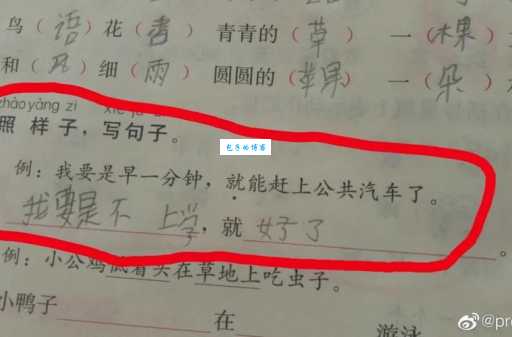 鸟（语）花（香） 青青的（草） 一（棵）
和（风）细（雨） 圆圆的（苹果） 一（朵）
zhào yàng zi xiě jù zi
照样子，写句子。
包子的博客
例：我要是早一分钟，就能赶上公共汽车了。
我要是不上学，就好了。
例：小公鸡低着头在草地上吃虫子。
小鸭子 在 游泳
@pro